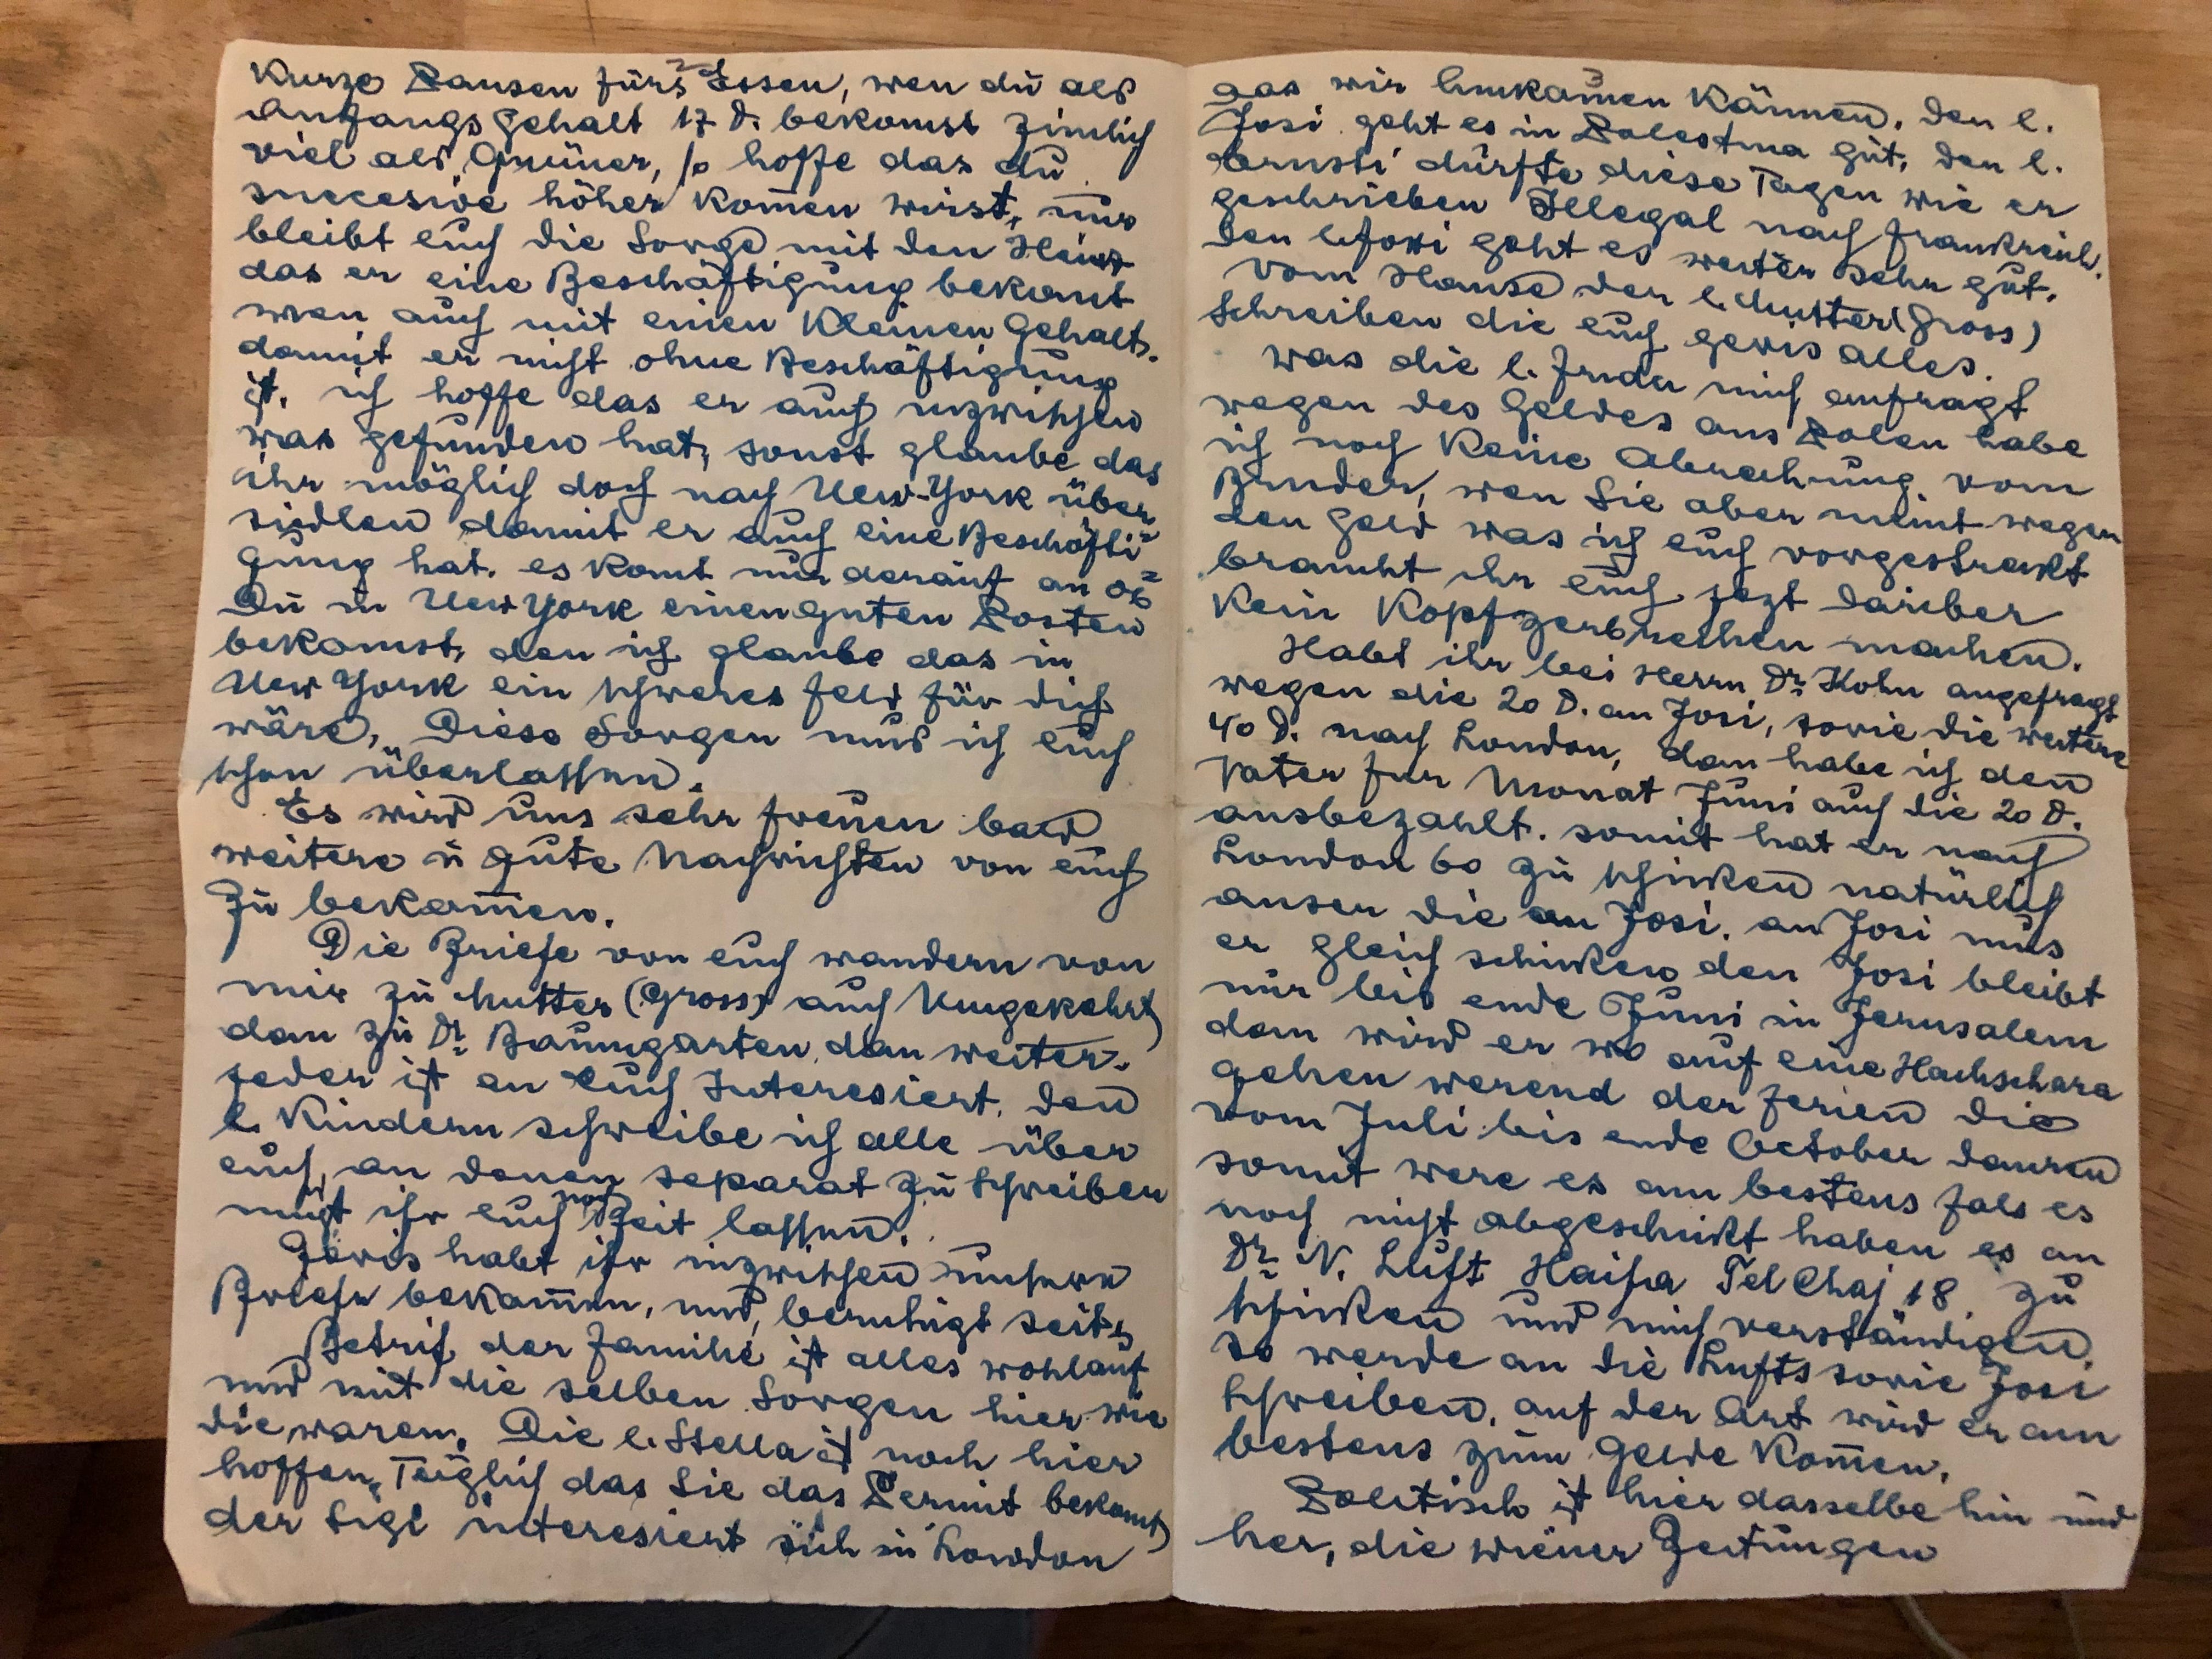 2
Kurze Pausen fürs Essen, wen du als
Anfangs Gehalt 17 D. bekomst zimlich
viel als Grüner, so hoffe das du
succesive höher kom̄en wirst, nur
bleibt euch die Sorge mit den Heinz
das er eine Beschäftigung bekomt
wen auch mit einen Kleinen Gehalt.
damit er nicht ohne Beschäftigung
ist. ich hoffe das er auch inzwischen
was gefunden hat, sonst glaube das
ihr möglich doch nach New-York über
siedlen damit er auch eine Beschäfti=
gung hat. es komt nur darauf an ob
Du in New York einen guten Posten
bekomst, den ich glaube das in
New York ein schweres feld für dich
wäre. Diese Sorgen mus ich euch
schon überlassen.
Es wird uns sehr freuen bald
weitere u gute Nachrichten von euch
zu bekom̄en.
Die Briefe von euch wandern von
mir zu Mutter (Gross) auch Umgekehrt
dan zu Dr. Baumgarten dan weiter.
jeder ist an Euch Interesiert. den
l. Kindern schreibe ich alle über
euch, an denen separat zu schreiben
müst ihr euch noch Zeit lassen.
Gewis habt ihr inzwischen unsere
Briefe bekom̄en, und beruhigt seit,
Betrif der Familie ist alles wohlauf
und mit die selben Sorgen hier wie
die waren. Die l. Stella ist noch hier
hoffen Täglich das Sie das Permit bekomt
der Sigi interesiert sich in London
3
das wir hinkom̄en Kän̄en. den l.
Josi geht es in Palestina gut, den l.
Ernsti dürfte diese Tagen wie er
geschrieben Illegal nach Frankreich.
den l. Jossi geht es weiter sehr gut.
Vom Hause der l. Mutter (Gross)
schreiben die euch gewis alles.
Was die l. Frida mich anfragt
wegen des Geldes aus Polen habe
ich noch Keine Abrechnung vom
Bruder, wen Sie aber meint wegen
den Geld was ich euch vorgestrekt
braucht ihr euch jezt darüber
Kein Kopfzerbrechen machen.
Habt ihr bei Herrn Dr. Kohn angefragt
wegen die 20 D. an Josi, sowie die weitere
40 D. nach London, dan habe ich den
Vater für Monat Juni auch die 20 D.
ausbezahlt. somit hat er nach
London 60 zu schiken natürlich
auser die an Josi. an Josi mus
er gleich schiken den Josi bleibt
nur bis ende Juni in Jerusalem
dan wird er wo auf eine Hachschara
gehen werend der ferien die
vom Juli bis ende October dauren
somit were es am bestens fals es
noch nicht abgeschikt haben es an
Dr. N. Luft Haifa Tel Chaj 18. zu
schiken und mich verständigen.
so werde an die Lufts sowie Josi
schreiben. auf der Art wird er am
bestens zum Gelde Kom̄en.
Politisch ist hier dasselbe hin und
her, die wiener Zeitungen